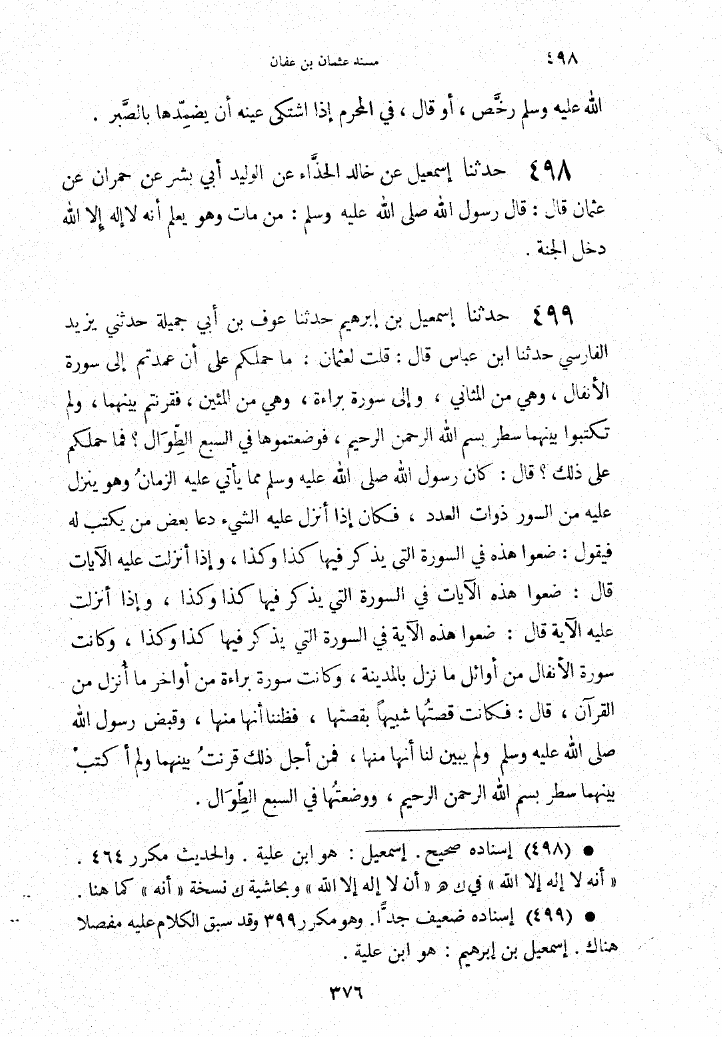 ٤٩٨ مسند عثمان بن عفان
الله عليه وسلم رخَّص ، أو قال ، في المحرم إذا اشتكى عينه أن يضمِّدها بالصَّبر .
٤٩٨ حدثنا إسمعيل عن خالد الحذَّاء عن الوليد أبي بشر عن حمران عن
عثمان قال : قال رسول الله صلى الله عليه وسلم : من مات وهو يعلم أنه لا إله إلا الله
دخل الجنة .
٤٩٩ حدثنا إسمعيل بن إبرهيم حدثنا عوف بن أبي جميلة حدثني يزيد
الفارسي حدثنا ابن عباس قال : قلت لعثمان : ما حملكم على أن عمدتم إلى سورة
الأنفال ، وهي من المثاني ، وإلى سورة براءة ، وهي من المئين ، فقرنتم بينهما ، ولم
تكتبوا بينهما سطر بسم الله الرحمن الرحيم ، فوضعتموها في السبع الطِّوَال ؟ فما حملكم
على ذلك ؟ قال : كان رسول الله صلى الله عليه وسلم مما يأتي عليه الزمانُ وهو ينزل
عليه من السور ذوات العدد ، فكان إذا أنزل عليه الشيء دعا بعض من يكتب له
فيقول : ضعوا هذه في السورة التي يذكر فيها كذا وكذا ، وإذا أنزلت عليه الآيات
قال : ضعوا هذه الآيات في السورة التي يذكر فيها كذا وكذا ، وإذا أنزلت
عليه الآية قال : ضعوا هذه الآية في السورة التي يذكر فيها كذا وكذا ، وكانت
سورة الأنفال من أوائل ما نزل بالمدينة ، وكانت سورة براءة من أواخر ما أُنزل من
القرآن ، قال : فكانت قصتُها شبيهاً بقصتها ، فظننا أنها منها ، وقبض رسول الله
صلى الله عليه وسلم ولم يبين لنا أنها منها ، فمن أجل ذلك قرنتُ بينهما ولم أكتبْ
بينهما سطر بسم الله الرحمن الرحيم ، ووضعتُها في السبع الطِّوَال .
● (٤٩٨) إسناده صحيح . إسمعيل : هو ابن علية . والحديث مكرر ٤٦٤ .
« أنه لا إله إلا الله » في ك ه « أن لا إله إلا الله » وبحاشية ك نسخة « أنه » كما هنا .
● (٤٩٩) إسناده ضعيف جدًّا . وهو مكرر ٣٩٩ وقد سبق الكلام عليه مفصلا
هناك . إسمعيل بن إبرهيم : هو ابن علية .
٣٧٦